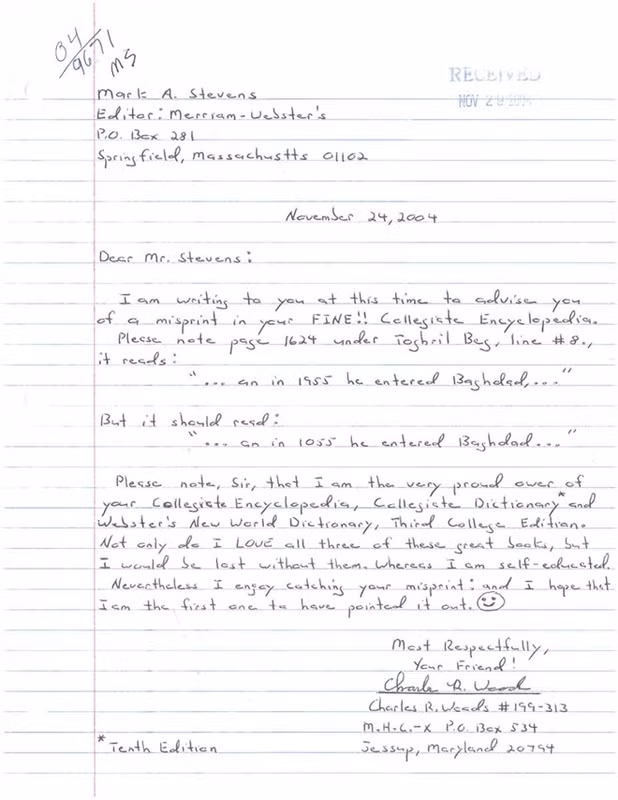 04
9671
MS
RECEIVED
NOV 29 2004
Mark A. Stevens
Editor: Merriam-Webster's
P.O. Box 281
Springfield, Massachustts 01102
November 24, 2004
Dear Mr. Stevens:
I am writing to you at this time to advise you
of a misprint in your FINE!! Collegiate Encyclopedia.
Please note page 1624 under Toghril Beg, line #8.,
it reads:
"... an in 1955 he entered Baghdad,..."
But it should read:
"... an in 1055 he entered Baghdad..."
Please note, Sir, that I am the very proud ower of
your Collegiate Encyclopedia, Collegiate Dictionary* and
Webster's New World Dictionary, Third College Edition.
Not only do I LOVE all three of these great books, but
I would be lost without them. Whereas I am self-educated.
Nevertheless I enjoy catching your misprint: and I hope that
I am the first one to have pointed it out.
Most Respectfully,
Your Friend!
Charles R. Woods
Charles R. Woods #199-313
M.H.C.-X P.O. Box 534
*Tenth Edition
Jessup, Maryland 20794